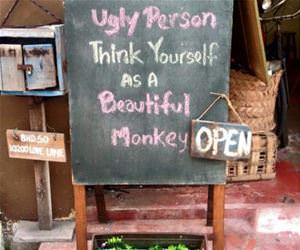 Ugly Person
Think Yourself
AS A
Beautiful
Monkey
OPEN
BHD.50
10200 LOVE LANE